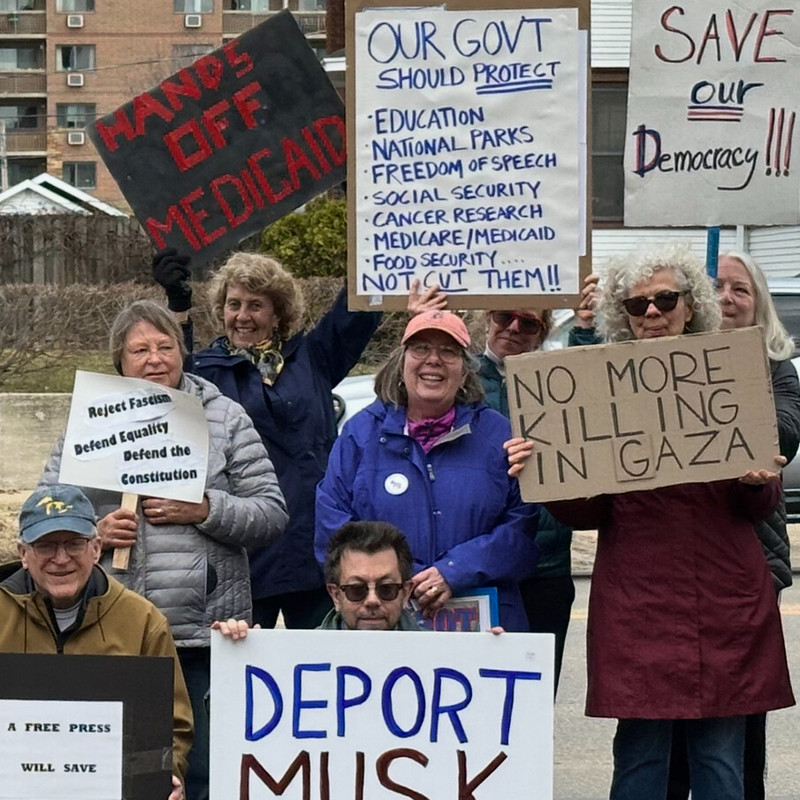 HANDS
OFF
MEDICAID
OUR GOV'T
SHOULD PROTECT
• EDUCATION
• NATIONAL PARKS
• FREEDOM OF SPEECH
• SOCIAL SECURITY
• CANCER RESEARCH
• MEDICARE/MEDICAID
• FOOD SECURITY....
NOT CUT THEM!!
SAVE
our
Democracy!!!
Reject Fascism
Defend Equality
Defend the
Constitution
NO MORE
KILLING
IN GAZA
A FREE PRESS
WILL SAVE
DEPORT
MUSK